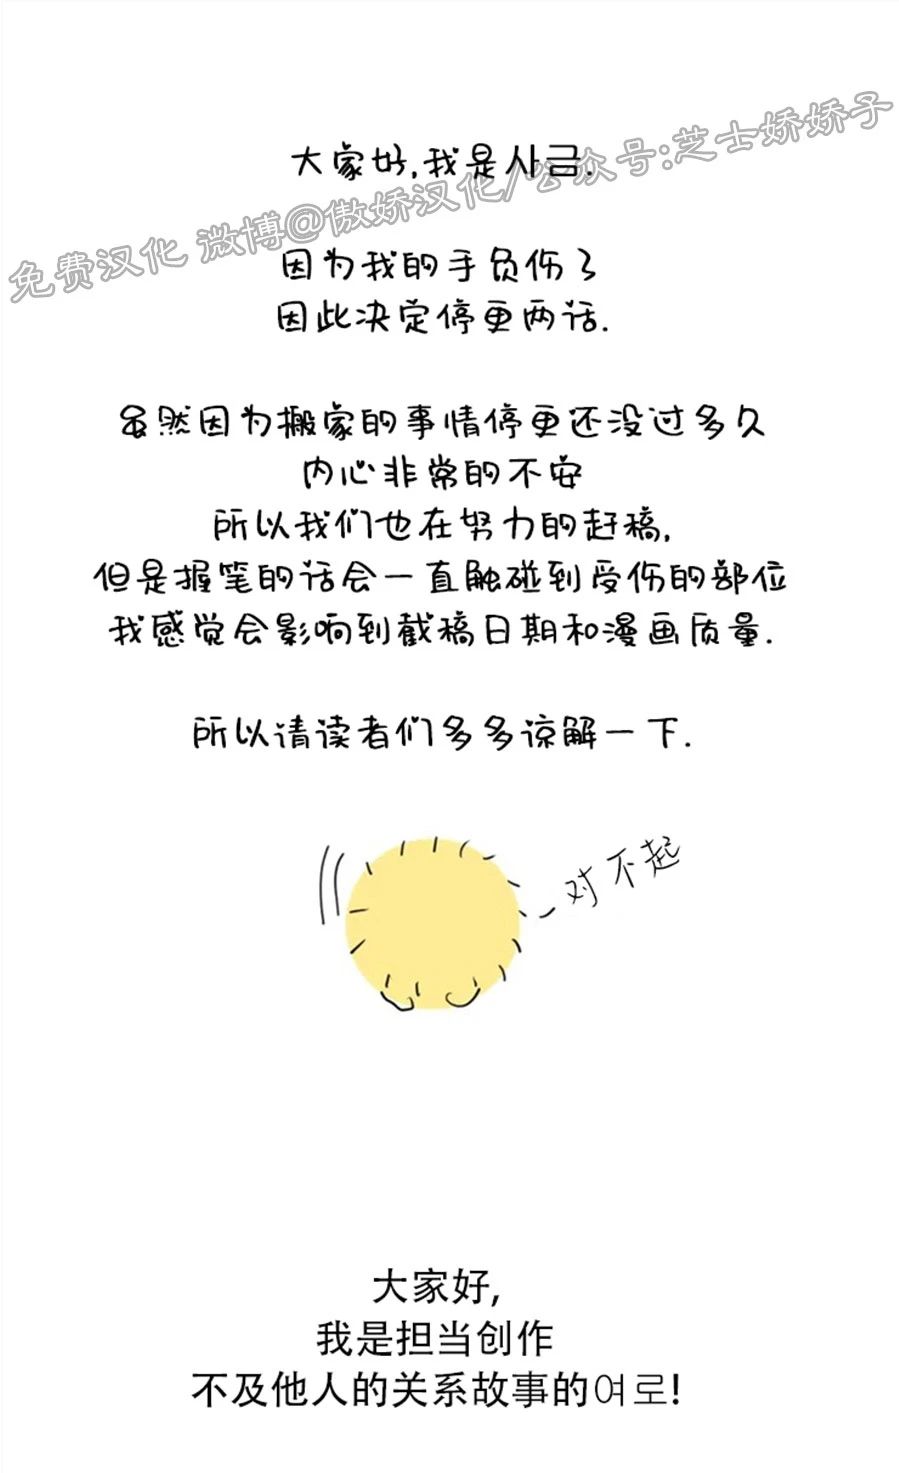 大家好,我是사금.
免费汉化 微博@傲娇汉化/公众号:芝士娇娇子
因为我的手负伤了
因此决定停更两话.
虽然因为搬家的事情停更还没过多久
内心非常的不安
所以我们也在努力的赶稿,
但是握笔的话会一直触碰到受伤的部位
我感觉会影响到截稿日期和漫画质量.
所以请读者们多多谅解一下.
对不起
大家好,
我是担当创作
不及他人的关系故事的여로!